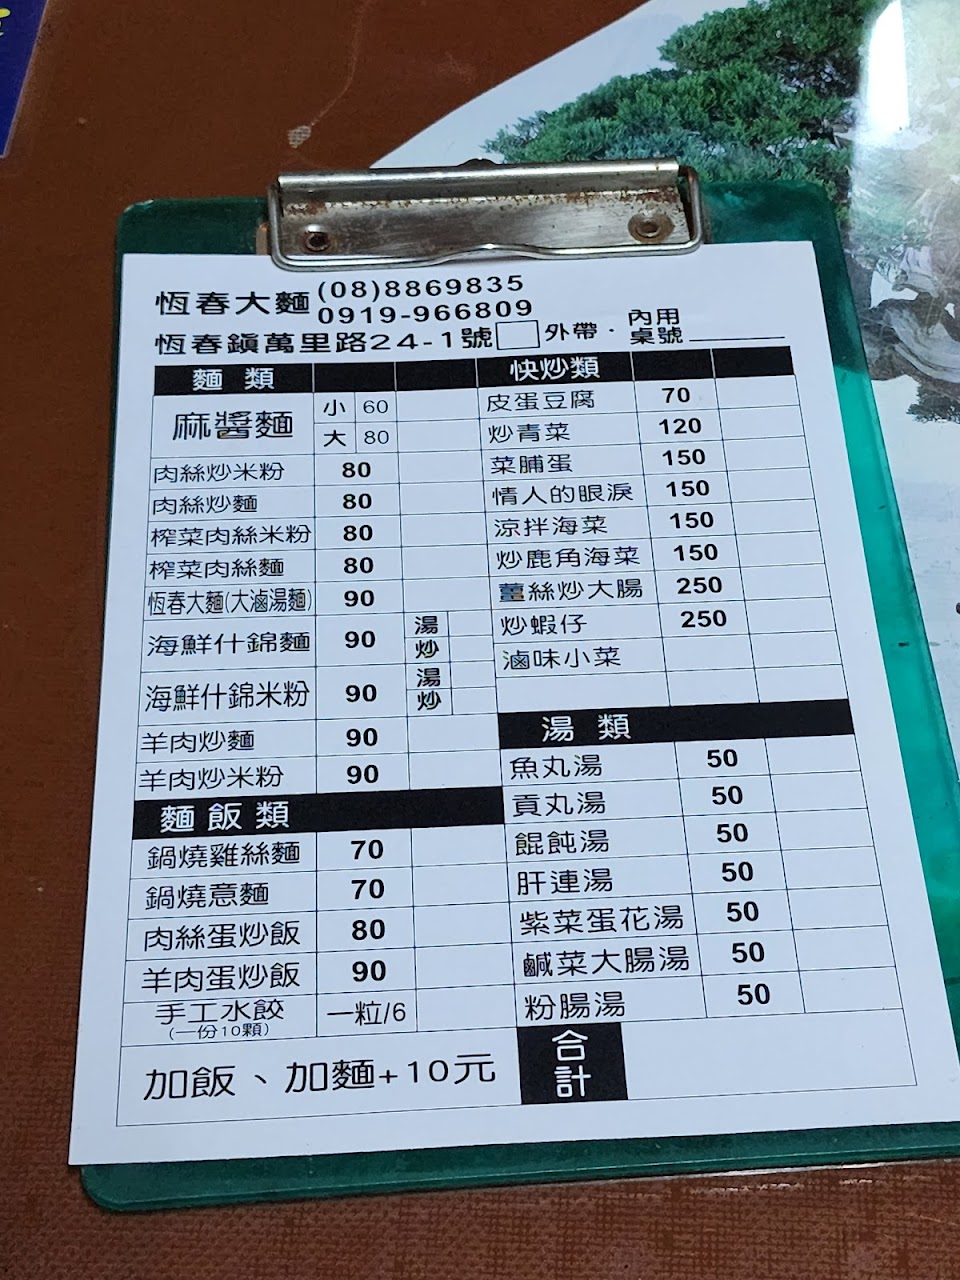 恆春大麵 (08)8869835
0919-966809
恆春鎮萬里路24-1號 外帶．內用
桌號
麵 類
麻醬麵 小 60
大 80
肉絲炒米粉 80
肉絲炒麵 80
榨菜肉絲米粉 80
榨菜肉絲麵 80
恆春大麵(大滷湯麵) 90
海鮮什錦麵 90 湯
炒
海鮮什錦米粉 90 湯
炒
羊肉炒麵 90
羊肉炒米粉 90
麵飯類
鍋燒雞絲麵 70
鍋燒意麵 70
肉絲蛋炒飯 80
羊肉蛋炒飯 90
手工水餃 一粒/6
(一份10顆)
加飯、加麵+10元
快炒類
皮蛋豆腐 70
炒青菜 120
菜脯蛋 150
情人的眼淚 150
涼拌海菜 150
炒鹿角海菜 150
薑絲炒大腸 250
炒蝦仔 250
滷味小菜
湯 類
魚丸湯 50
貢丸湯 50
餛飩湯 50
肝連湯 50
紫菜蛋花湯 50
鹹菜大腸湯 50
粉腸湯 50
合計